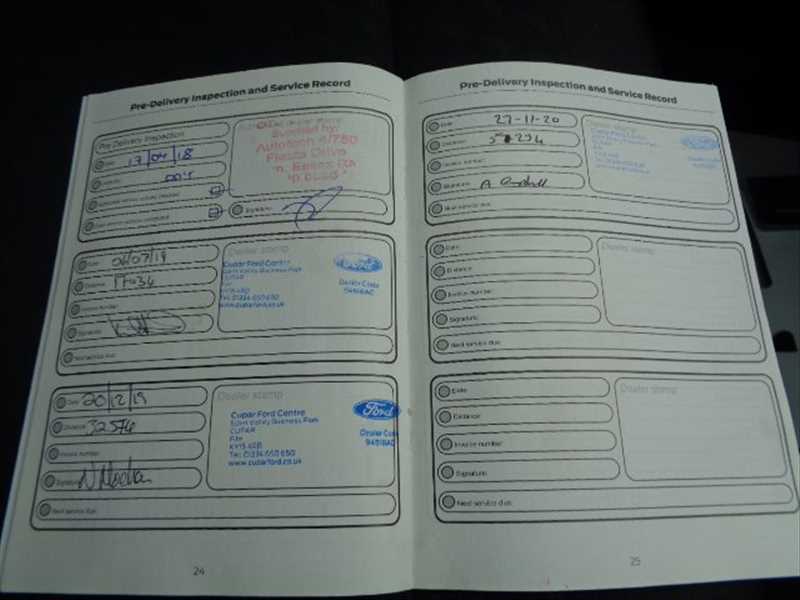 Pre-Delivery Inspection and Service Record
Pre Delivery Inspection
Date 17/04/18
004
Signature
Autotech
Fiesta Drive
Date 04/07/19
Distance 17034
Invoice number
Signature
Next service due
Dealer stamp
Cupar Ford Centre
Eden Valley Business Park
CUPAR
Fife
KY15 4RB
Tel: 01334 650 650
www.cuparford.co.uk
Ford
Dealer Code
94918AC
Date 20/12/19
Distance 32574
Invoice number
Signature
Next service due
Dealer stamp
Cupar Ford Centre
Eden Valley Business Park
CUPAR
Fife
KY15 4RB
Tel: 01334 650 650
www.cuparford.co.uk
Ford
Dealer Code
94918AC
24
Pre-Delivery Inspection and Service Record
Date 27-11-20
Distance
Invoice number
Signature
Next service due
Dealer stamp
Cupar Ford Centre
Ford
Date
Distance
Invoice number
Signature
Next service due
Dealer stamp
Date
Distance
Invoice number
Signature
Next service due
Dealer stamp
25